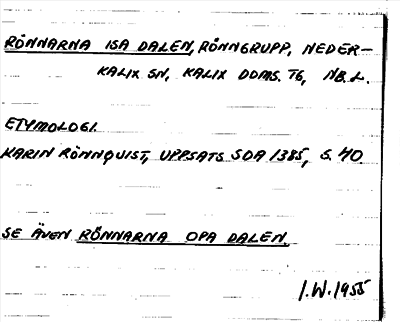 RÖNNARNA ISA DALEN, RÖNNGRUPP, NEDER-
KALIX SN, KALIX DOMS. TG, NB. L.
ETYMOLOGI.
KARIN RÖNNQUIST, UPPSATS SDA 1385, S. 40
SE ÄVEN RÖNNARNA OPA DALEN.
I.W. 1955